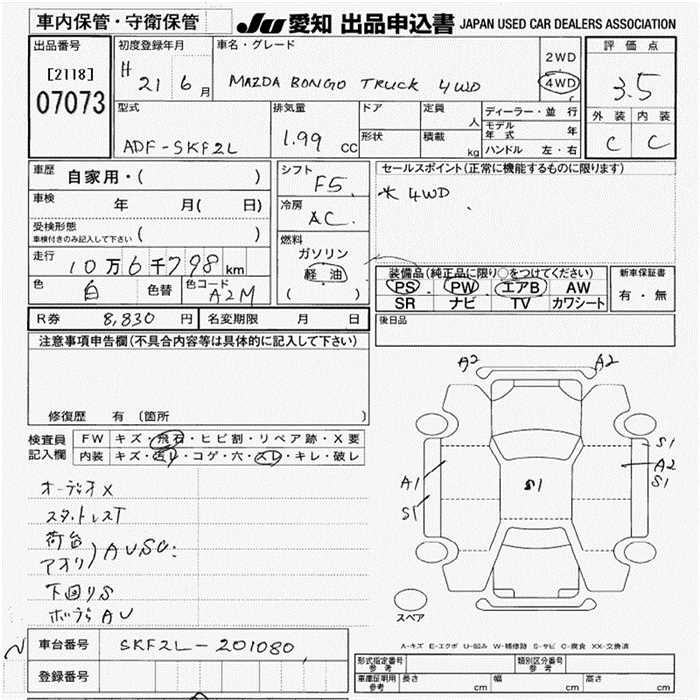 車内保管・守衛保管
JU 愛知 出品申込書 JAPAN USED CAR DEALERS ASSOCIATION
出品番号
[2118]
07073
初度登録年月
H 21 6月
車名・グレード
MAZDA BONGO TRUCK 4WD
2WD
4WD
評価点
3.5
外装 内装
C C
型式
ADF-SKF2L
排気量
1.99 cc
ドア
形状
定員 人
積載 kg
ディーラー・並行
モデル年式 年
ハンドル 左・右
車歴 自家用・( )
車検 年 月( 日)
受検形態
車検付きのみ記入して下さい ( )
走行 10万6千798km
色 白 色替 色コード A2M
シフト F5
冷房 AC
燃料
ガソリン
軽油
( )
セールスポイント(正常に機能するものに限ります)
4WD
装備品(純正品に限り○をつけてください)
PS PW エアB AW
SR ナビ TV カワシート
新車保証書
有・無
R券 8,830円 名変期限 月 日
後日品
注意事項申告欄(不具合内容等は具体的に記入して下さい)
修復歴 有 〔箇所
検査員記入欄
FW キズ・飛石・ヒビ割・リペア跡・X要
内装 キズ・汚レ・コゲ・穴・スレ・キレ・破レ
オーディオX
スタットレスT
荷台
アオリ ) AUSC:
下回りS
ボデーAU
A2 A2
A1
S1
S1
S1
A2
S1
スペア
A-キズ E-エクボ U-凹み W-補修跡 S-サビ C-腐食 XX-交換済
車台番号 SKF2L-201080
登録番号
型式指定番号 参考
類別区分番号 参考
車庫証明用 参考 長さ cm 幅 cm 高さ cm